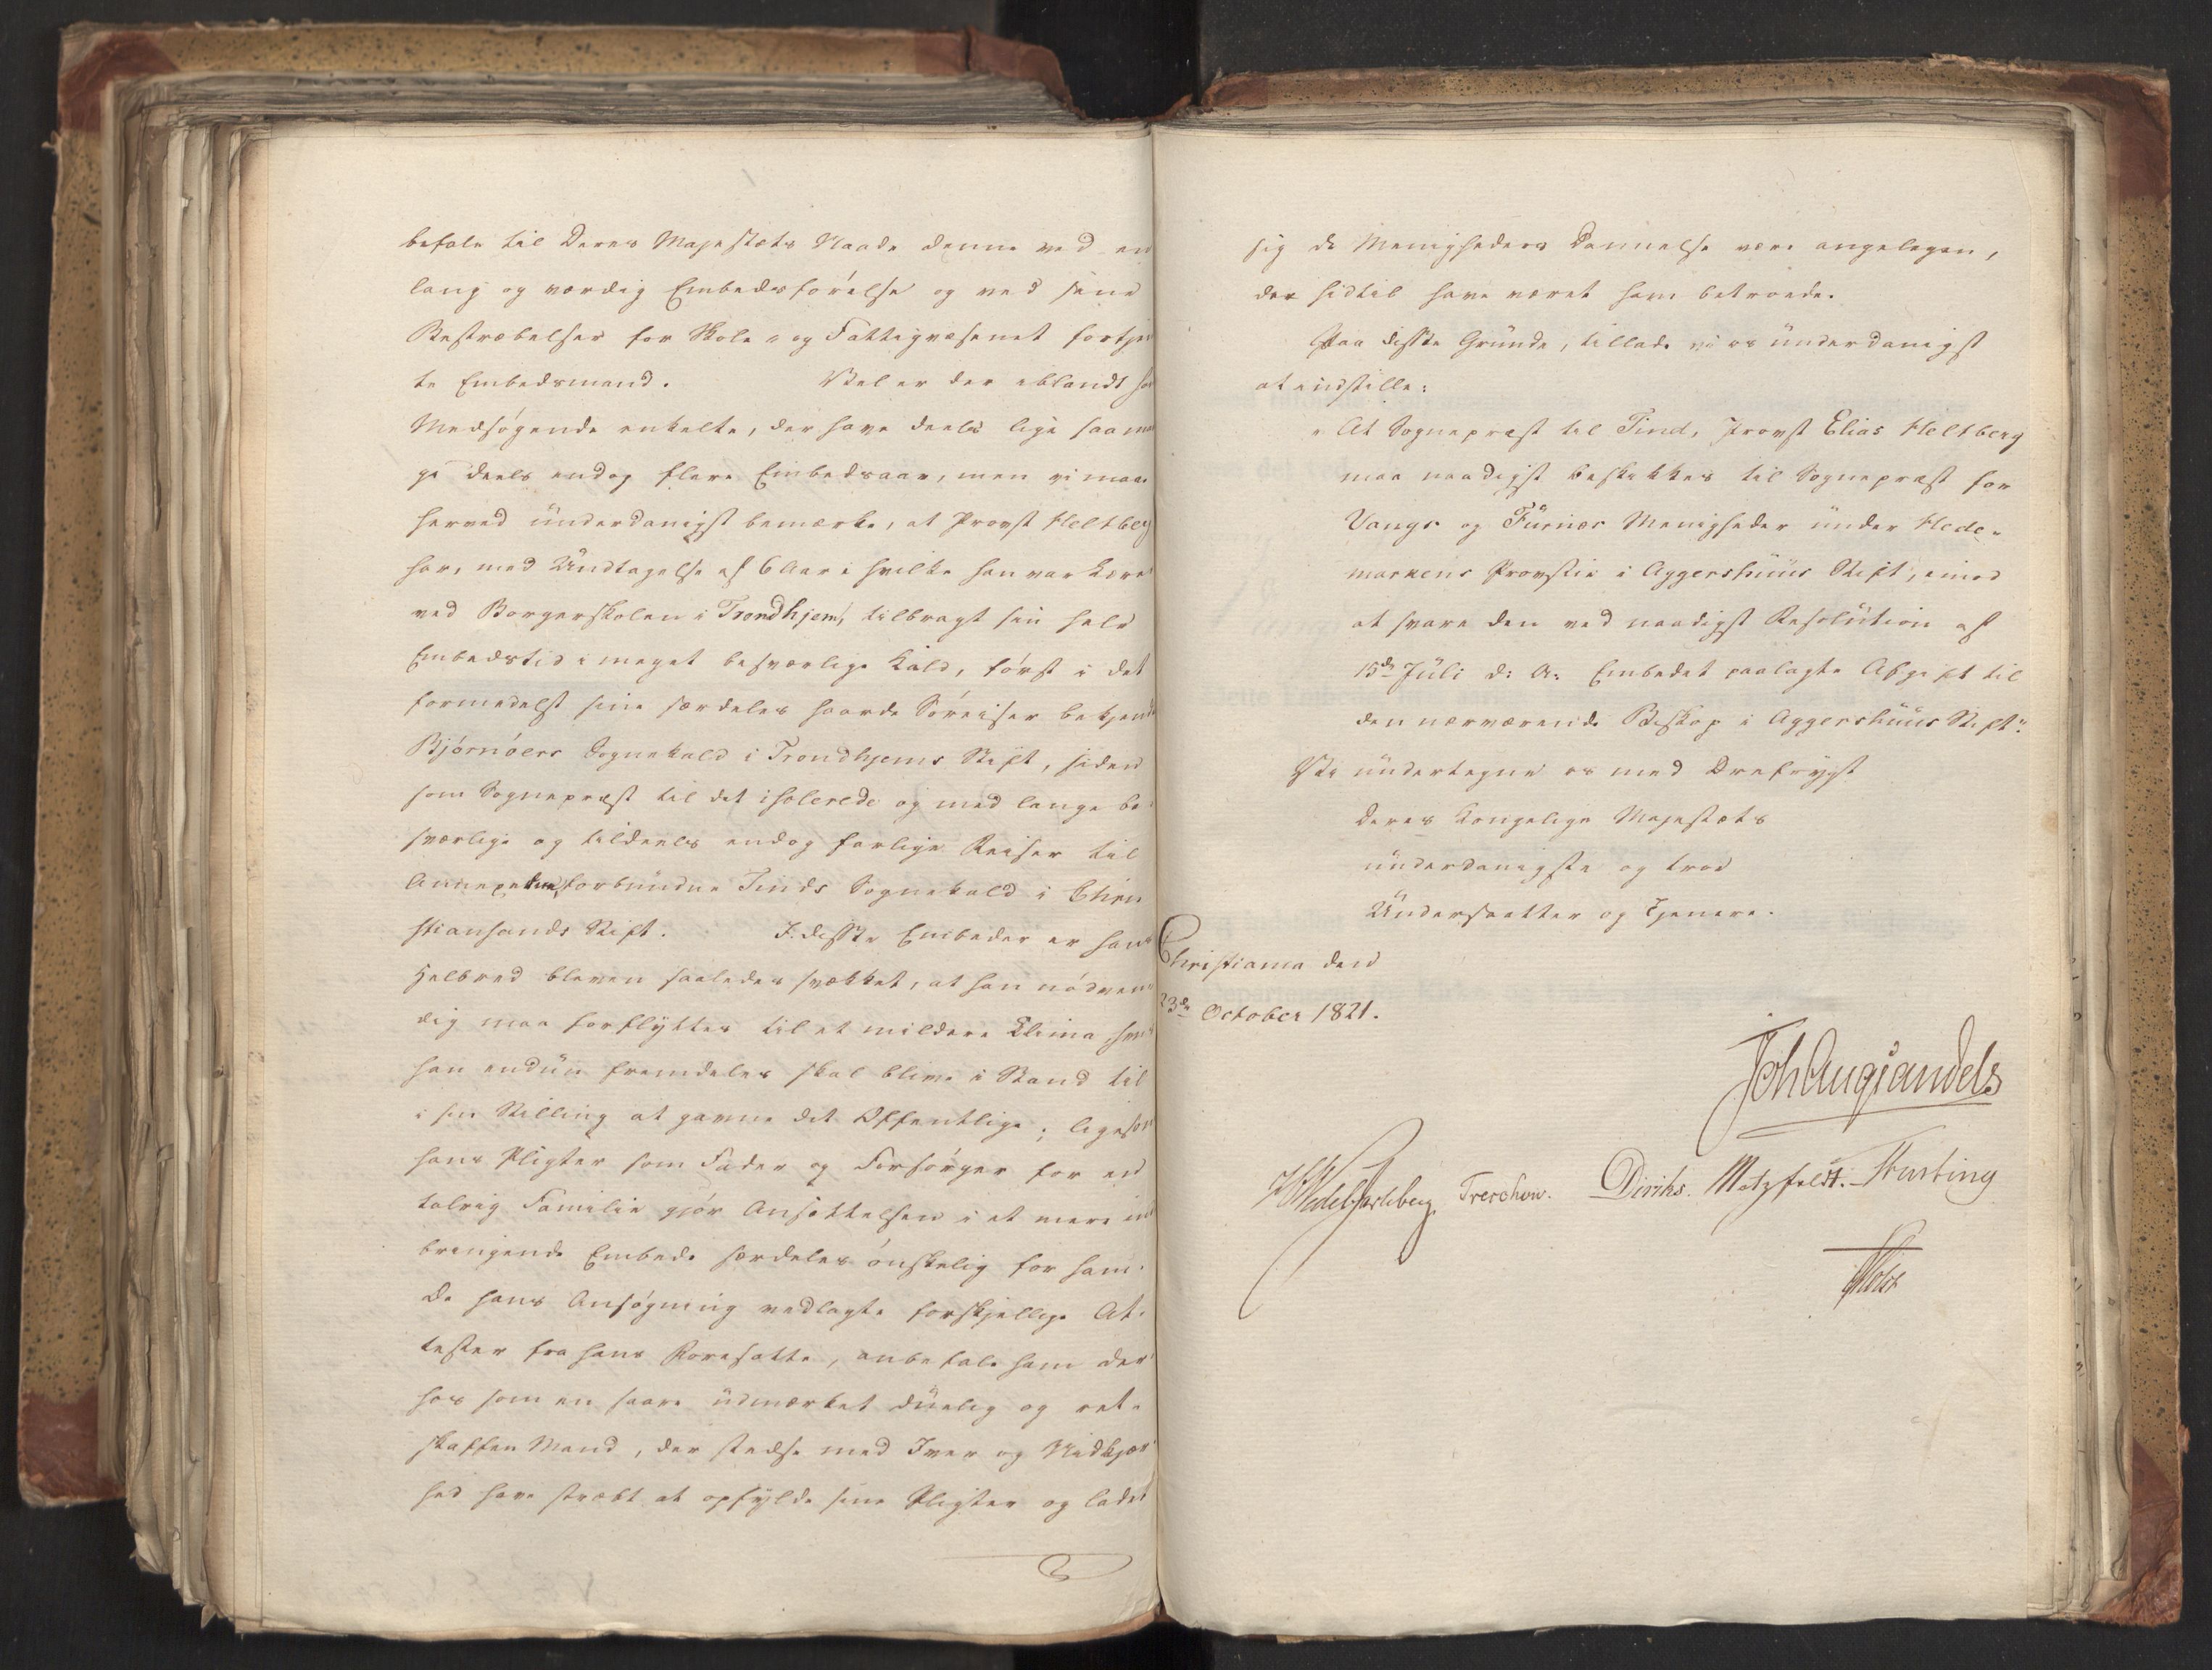 befale til Deres Majestæts Naade denne ved en
lang og værdig Embedsførelse og ved sine
Bestræbelser for Skole- og Fattigvæsenet fortjen
te Embedsmand. Vel er der iblandt
Medsøgende enkelte, der have deels lige saa man
ge deels endog flere Embedsaar, men vi maae
herved underdanigst bemærke, at Provst Heltberg
har, med Undtagelse af 6 Aar i hvilke han var Lærer
ved Borgerskolen i Trondhjem, tilbragt sin hele
Embedstid i meget besværlige Kald, først i det
formedelst sine særdeles haarde Søreiser bekjendte
Bjørnøers Sognekald i Trondhjems Stift, siden
som Sognepræst til det isolerede og med lange be-
sværlige og tildeels endog farlige Reiser til
Annexerne forbundne Tinds Sognekald i Chri
stiansands Stift. I disse Embeder er hans
Helbred bleven saaledes svækket, at han nødven
dig maa forflyttes til et mildere Clima, hvis
han endnu fremdeles skal blive i Stand til
i sin Stilling at gavne det Offentlige; ligesom
hans Pligter som Fader og Forsørger for en
talrig Familie gjør Ansættelsen i et mere ind
bringende Embede særdeles ønskelig for ham.
De hans Ansøgning vedlagte forskjellige At-
tester fra hans Foresatte, anbefale ham der
hos som en saare udmærket duelig og ret-
skaffen Mand, der stedse med Iver og Nidkjær
hed have stræbt at opfylde sine Pligter og ladet
sig de Menigheders Dannelse være angelegen,
der hidtil have været ham betroede.
Paa disse Grunde, tillade vi os underdanigst
at indstille:
"At Sognepræst til Tind, Provst Elias Heltberg
maa naadigst beskikkes til Sognepræst for
Vangs og Furnæs Menigheder under Hede-
markens Provstie i Aggershuus Stift, imod
at svare den ved naadigst Resolution af
15de Juli d: A: Embedet paalagte Afgift til
den nærværende Biskop i Aggershuus Stift."
Vi undertegne os med Ærefrygt
Deres Kongelige Majestæts
underdanigste og troe
Undersaatter og Tjenere.
Christiania den
23de October 1821.
Joh Aug Sandels
HWedel Jarlsberg. Treschow. Diriks. Motzfeldt. Krefting
Holst